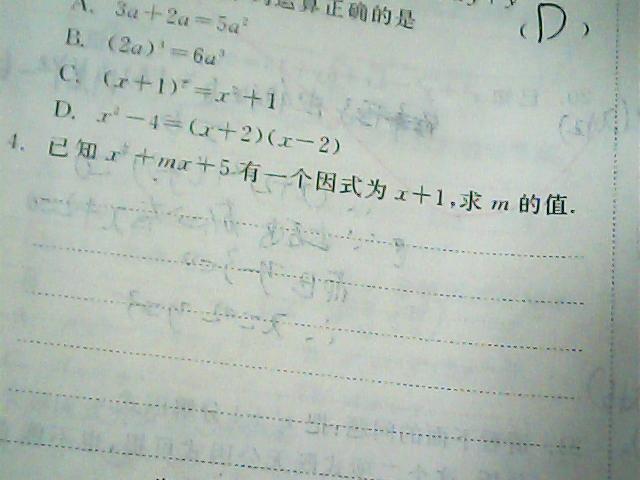 运算正确的是 (D)
A. 3a+2a=5a²
B. (2a)³=6a³
C. (x+1)²=x²+1
D. x²-4=(x+2)(x-2)
4. 已知x²+mx+5有一个因式为x+1,求m的值.